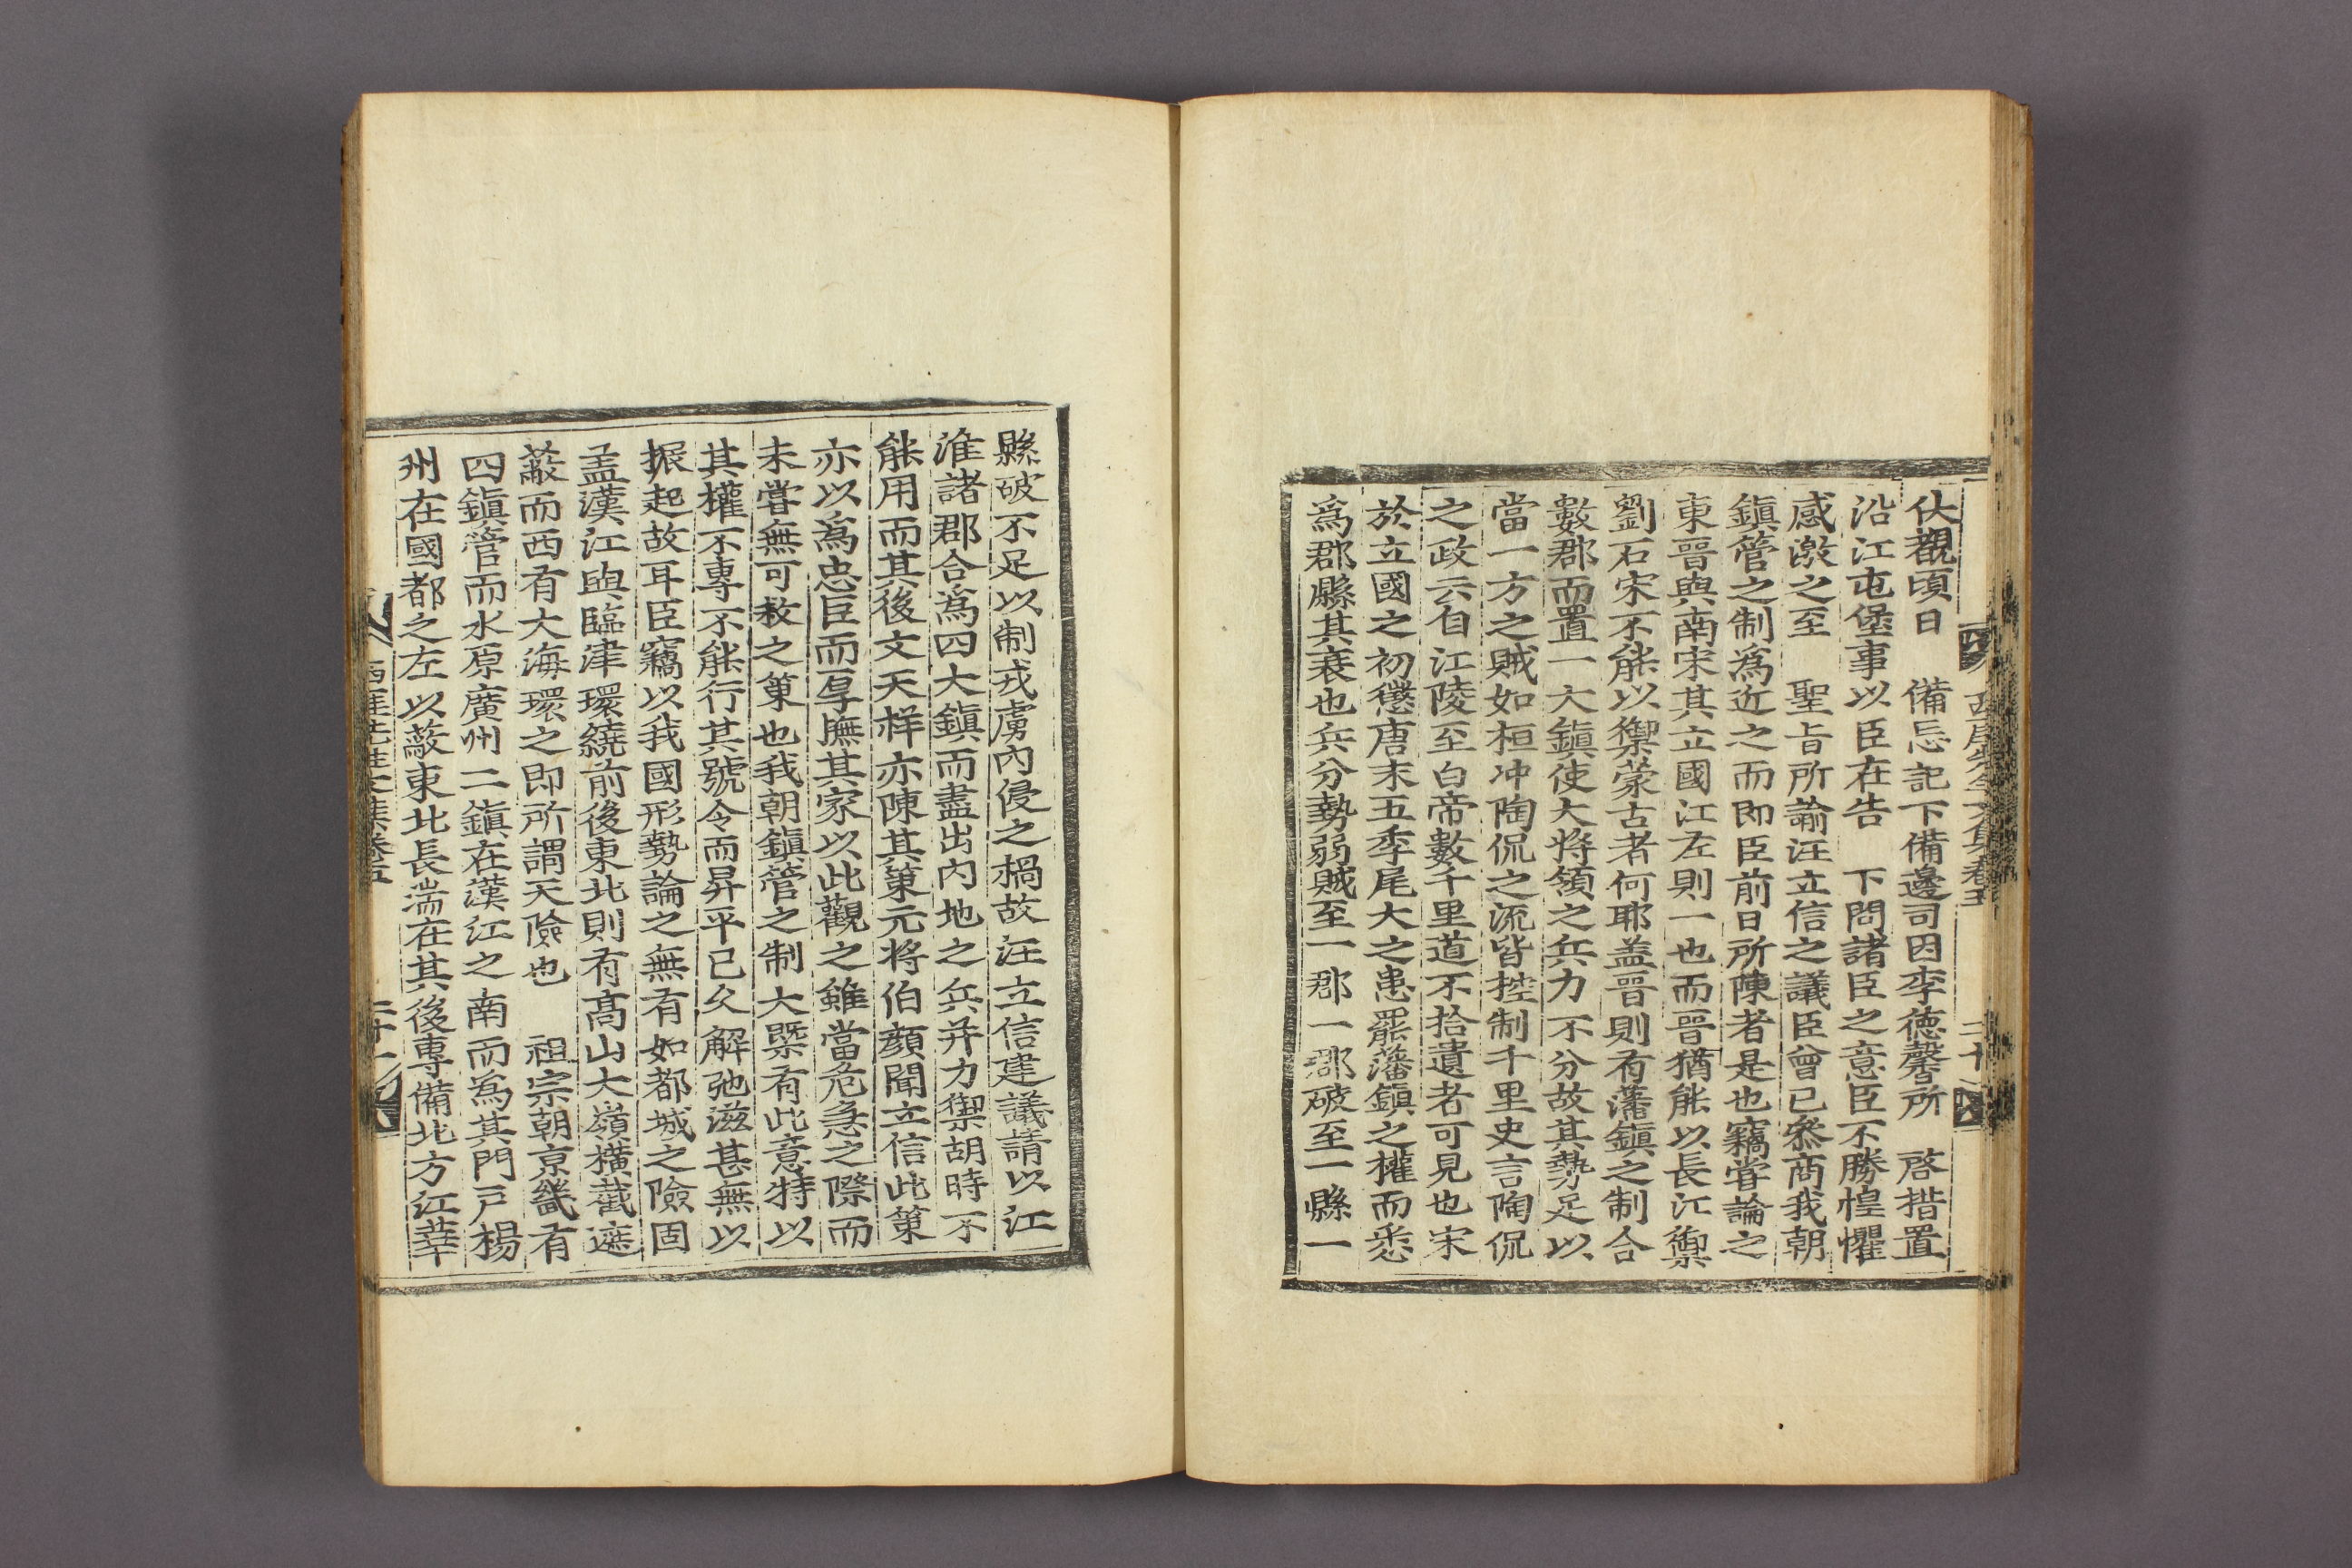 西厓先生文集卷五
二十
伏覩頃日 備忘記下備邊司因李德馨所 啓措置
沿江屯堡事以臣在告 下問諸臣之意臣不勝惶懼
感激之至 聖旨所諭汪立信之議臣曾已參商我朝
鎭管之制爲近之而即臣前日所陳者是也竊嘗論之
東晉與南宋其立國江左則一也而晉猶能以長江禦
劉石宋不能以禦蒙古者何耶盖晉則有藩鎭之制合
數郡而置一大鎭使大將領之兵力不分故其勢足以
當一方之賊如桓冲陶侃之流皆控制千里史言陶侃
之政云自江陵至白帝數千里道不拾遺者可見也宋
於立國之初懲唐末五季尾大之患罷藩鎭之權而悉
爲郡縣其衰也兵分勢弱賊至一郡一郡破至一縣一
縣破不足以制戎虜內侵之禍故汪立信建議請以江
淮諸郡合爲四大鎭而盡出內地之兵并力禦胡時不
能用而其後文天祥亦陳其策元將伯顔聞立信此策
亦以爲忠臣而厚撫其家以此觀之雖當危急之際而
未嘗無可救之策也我朝鎭管之制大槩有此意特以
其權不專不能行其號令而昇平已久解弛滋甚無以
振起故耳臣竊以我國形勢論之無有如都城之險固
盖漢江與臨津環繞前後東北則有高山大嶺橫截遮
蔽而西有大海環之即所謂天險也 祖宗朝京畿有
四鎭管而水原廣州二鎭在漢江之南而爲其門戶楊
州在國都之左以蔽東北長湍在其後專備北方江華
西厓先生文集卷五